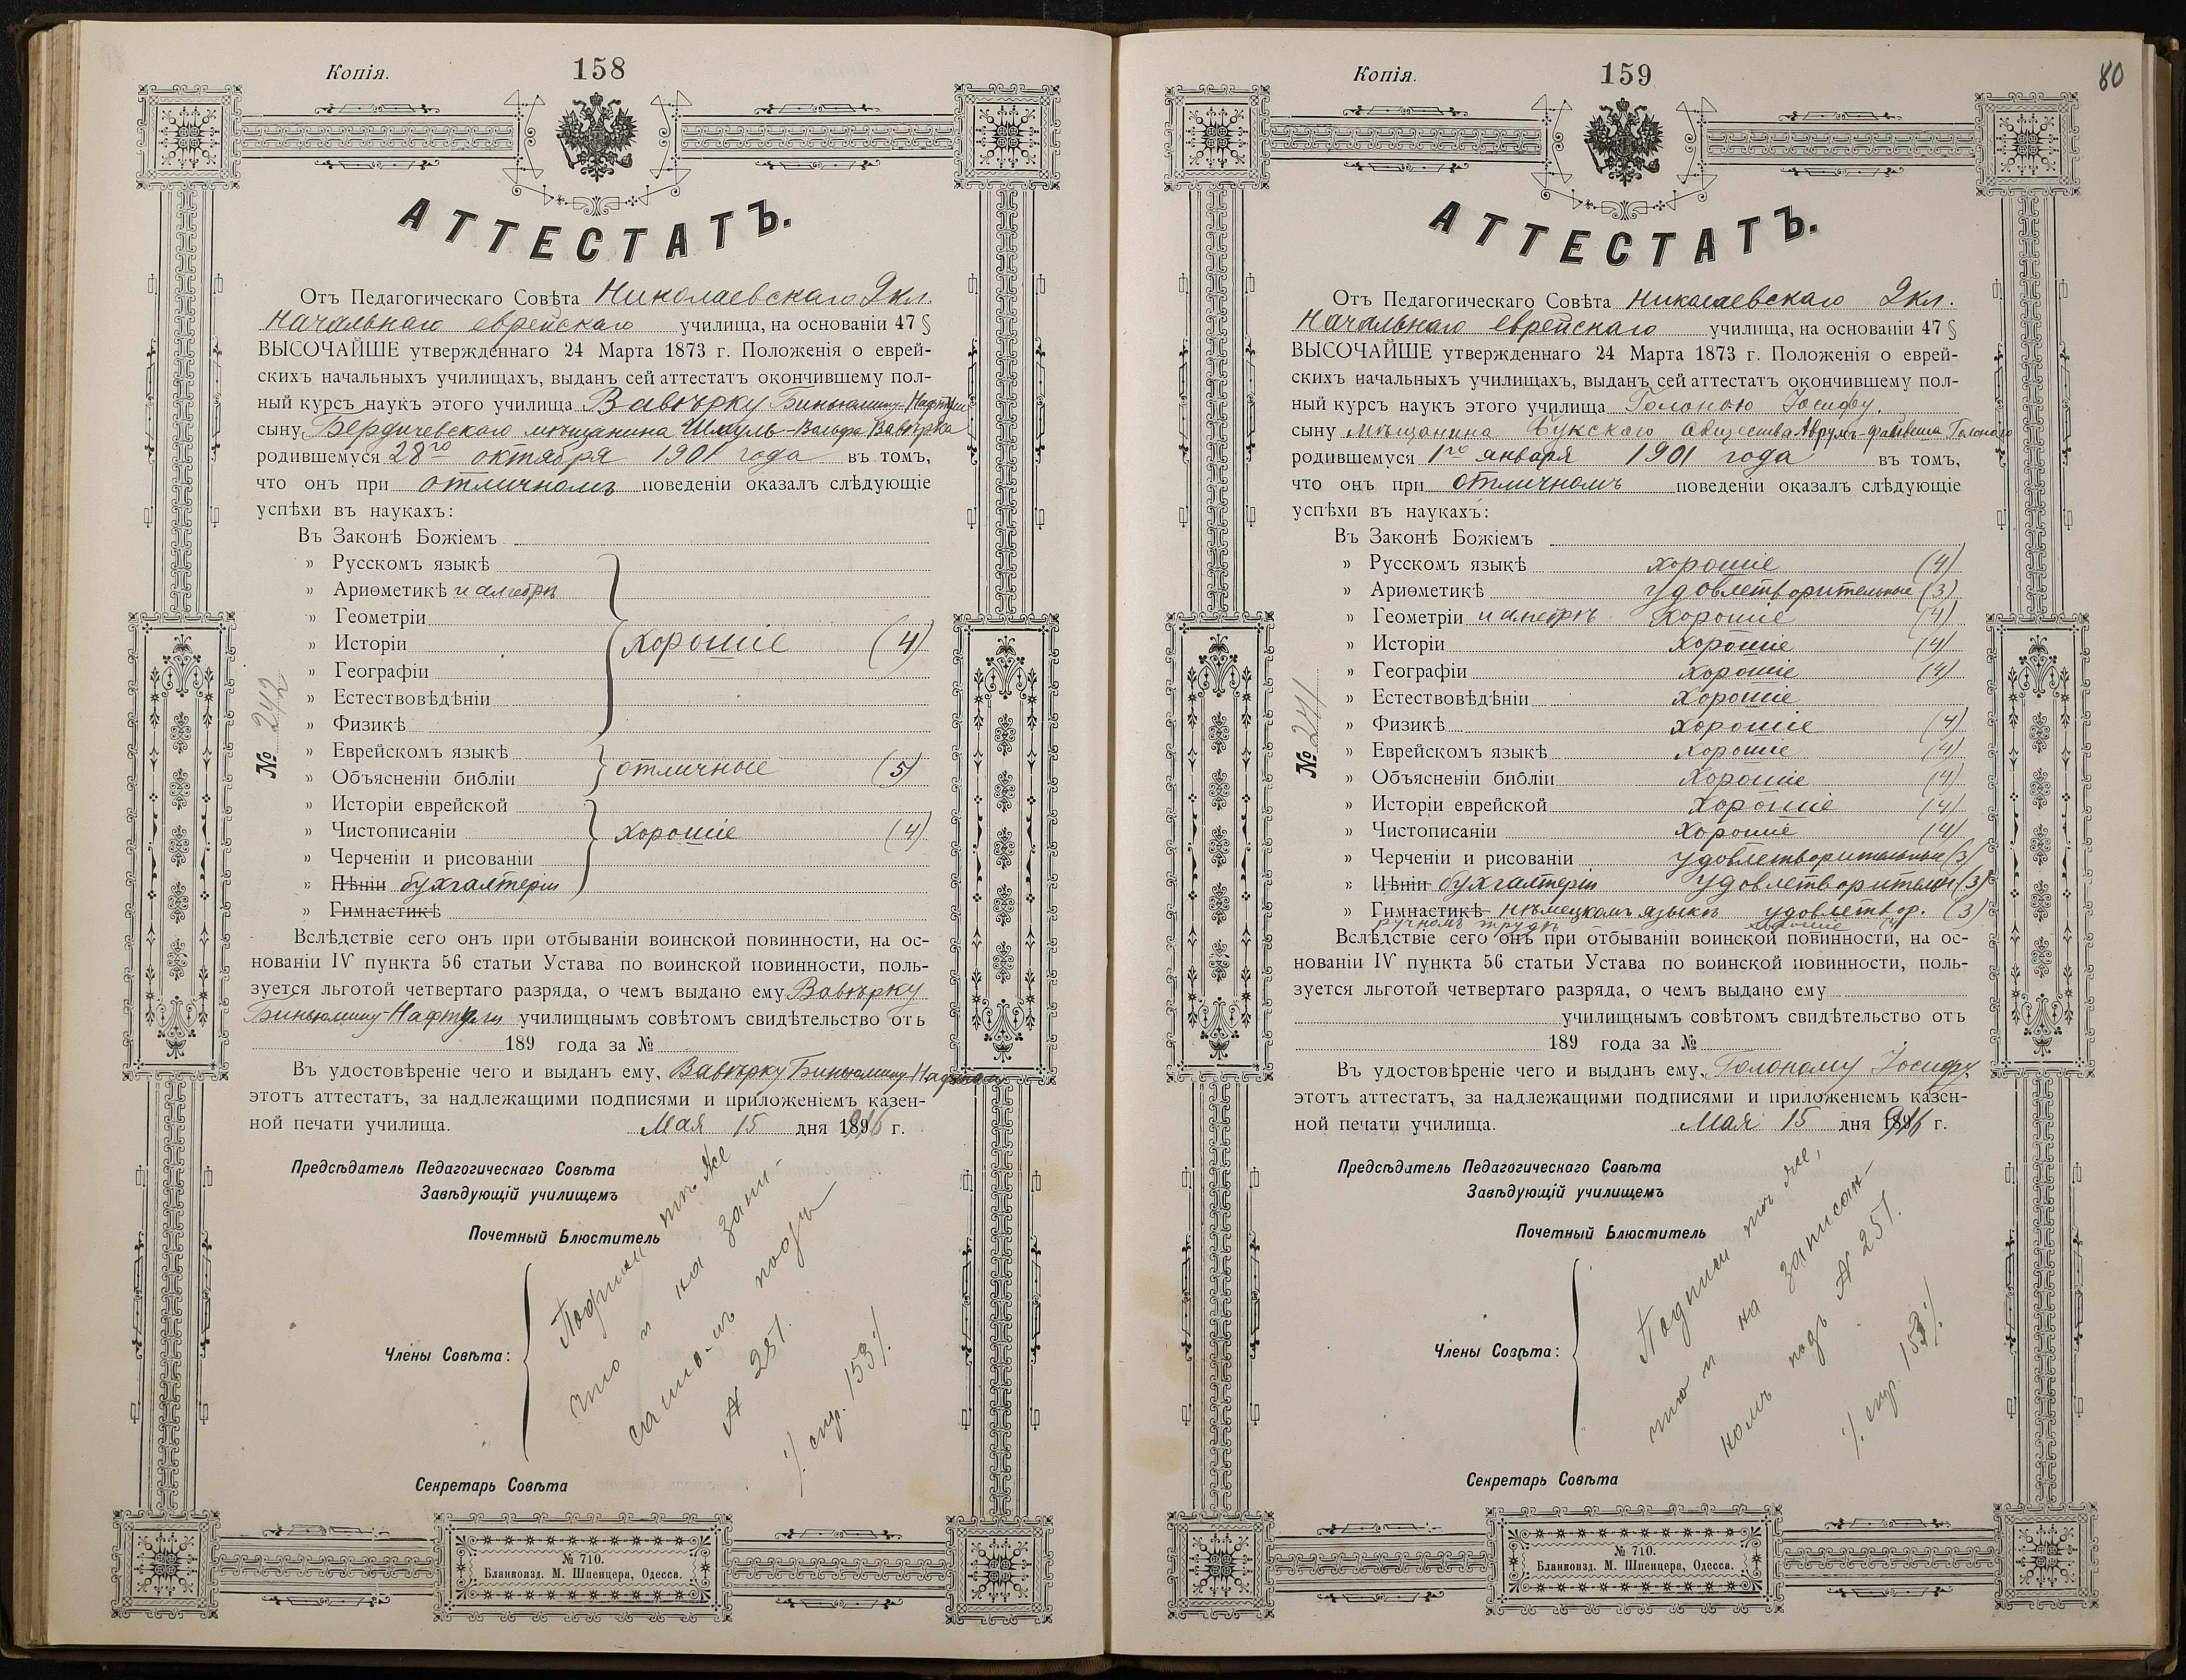 Копія.
158
АТТЕСТАТЪ.
Отъ Педагогическаго Совѣта Николаевскаго 2кл.
Начальнаго еврейскаго училища, на основаніи 47 §
ВЫСОЧАЙШЕ утвержденнаго 24 Марта 1873 г. Положенія о еврей-
скихъ начальныхъ училищахъ, выданъ сей аттестатъ окончившему пол-
ный курсъ наукъ этого училища Вавѣрку Биньямину-Нафтули
сыну Бердичевскаго мѣщанина Шмуль-Вольфа Вавѣрка
родившемуся 28го октября 1901 года въ томъ,
что онъ при отличномъ поведеніи оказалъ слѣдующіе
успѣхи въ наукахъ:
Въ Законѣ Божіемъ
» Русскомъ языкѣ
» Ариѳметикѣ и алгебрѣ
» Геометріи
» Исторіи хорошіе (4)
» Географіи
» Естествовѣдѣніи
» Физикѣ
» Еврейскомъ языкѣ
» Объясненіи библіи отличные (5)
» Исторіи еврейской
» Чистописаніи хорошіе (4)
» Черченіи и рисованіи
» Пѣніи бухгалтеріи
» Гимнастикѣ
№ 242
Вслѣдствіе сего онъ при отбываніи воинской повинности, на ос-
нованіи IV пункта 56 статьи Устава по воинской повинности, поль-
зуется льготой четвертаго разряда, о чемъ выдано ему Вавѣрку
Биньямину-Нафтули училищнымъ совѣтомъ свидѣтельство отъ
189 года за №
Въ удостовѣреніе чего и выданъ ему, Вавѣрку Биньямину-Нафтали
этотъ аттестатъ, за надлежащими подписями и приложеніемъ казен-
ной печати училища. Мая 15 дня 1916 г.
Предсѣдатель Педагогическаго Совѣта
Завѣдующій училищемъ
Почетный Блюститель
Члены Совѣта:
Подписи тѣ же
что и на запи-
санномъ подъ
№ 251.
/. стр. 153/.
Секретарь Совѣта
№ 710.
Бланкоизд. М. Шпенцера, Одесса.
Копія.
159
80
АТТЕСТАТЪ.
Отъ Педагогическаго Совѣта Николаевскаго 2кл.
Начальнаго еврейскаго училища, на основаніи 47 §
ВЫСОЧАЙШЕ утвержденнаго 24 Марта 1873 г. Положенія о еврей-
скихъ начальныхъ училищахъ, выданъ сей аттестатъ окончившему пол-
ный курсъ наукъ этого училища Голоною Іосифу.
сыну мѣщанина Букскаго общества Аврумъ-Файвеша Голонаго
родившемуся 1го января 1901 года въ томъ,
что онъ при отличномъ поведеніи оказалъ слѣдующіе
успѣхи въ наукахъ:
Въ Законѣ Божіемъ
» Русскомъ языкѣ хорошіе (4)
» Ариѳметикѣ удовлетворительные (3)
» Геометріи и алгебрѣ хорошіе (4)
» Исторіи хорошіе (4)
» Географіи хорошіе (4)
» Естествовѣдѣніи хорошіе
» Физикѣ хорошіе (4)
» Еврейскомъ языкѣ хорошіе (4)
» Объясненіи библіи хорошіе (4)
» Исторіи еврейской хорошіе (4)
» Чистописаніи хорошіе (4)
» Черченіи и рисованіи удовлетворительные (3)
» Пѣніи бухгалтеріи удовлетворительн (3)
» Гимнастикѣ нѣмецкомъ языкѣ удовлетвор. (3)
ручномъ трудѣ хорошіе (4)
№ 241
Вслѣдствіе сего онъ при отбываніи воинской повинности, на ос-
нованіи IV пункта 56 статьи Устава по воинской повинности, поль-
зуется льготой четвертаго разряда, о чемъ выдано ему
училищнымъ совѣтомъ свидѣтельство отъ
189 года за №
Въ удостовѣреніе чего и выданъ ему, Голоному Іосифу
этотъ аттестатъ, за надлежащими подписями и приложеніемъ казен-
ной печати училища. Мая 15 дня 1916 г.
Предсѣдатель Педагогическаго Совѣта
Завѣдующій училищемъ
Почетный Блюститель
Члены Совѣта:
Подписи тѣ же,
что и на записан-
номъ подъ № 251.
/. стр. 153/.
Секретарь Совѣта
№ 710.
Бланкоизд. М. Шпенцера, Одесса.